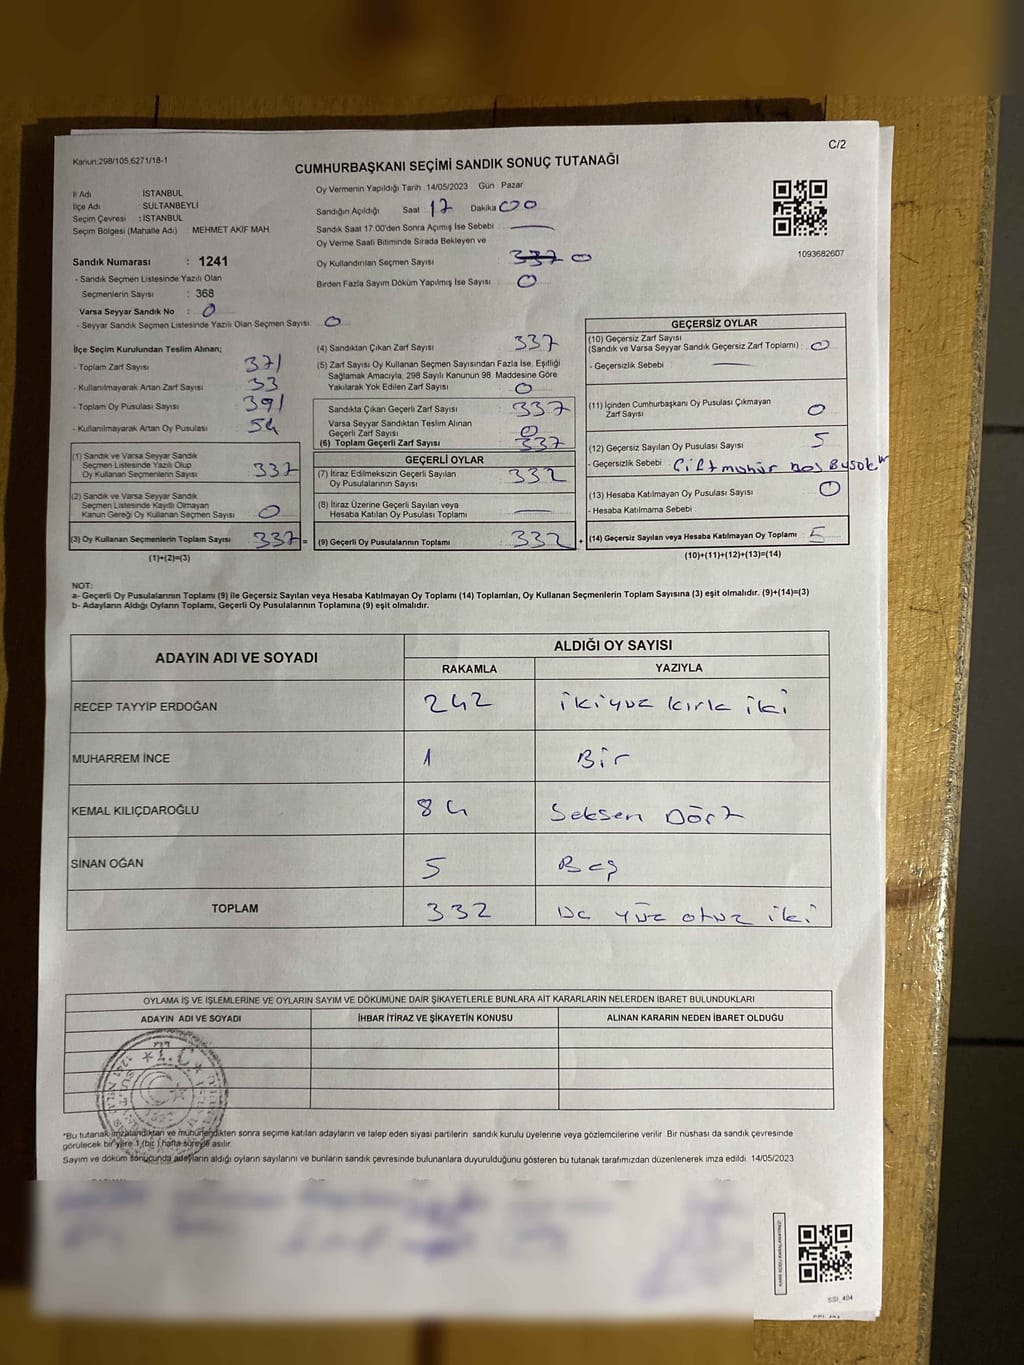 Kanun:298/105,6271/18-1
C/2
CUMHURBAŞKANI SEÇİMİ SANDIK SONUÇ TUTANAĞI
İl Adı : İSTANBUL
İlçe Adı : SULTANBEYLİ
Seçim Çevresi : İSTANBUL
Seçim Bölgesi (Mahalle Adı) MEHMET AKİF MAH.
Sandık Numarası : 1241
- Sandık Seçmen Listesinde Yazılı Olan
Seçmenlerin Sayısı : 368
Varsa Seyyar Sandık No : 0
- Seyyar Sandık Seçmen Listesinde Yazılı Olan Seçmen Sayısı: 0
Oy Vermenin Yapıldığı Tarih :14/05/2023 Gün Pazar
Sandığın Açıldığı Saat : 17 Dakika : 00
Sandık Saat 17:00'den Sonra Açımış İse Sebebi :
Oy Verme Saati Bitiminde Sırada Bekleyen ve
Oy Kullandırılan Seçmen Sayısı : 337 0
Birden Fazla Sayım Döküm Yapılmış İse Sayısı : 0
1093682607
İlçe Seçim Kurulundan Teslim Alınan;
- Toplam Zarf Sayısı : 371
- Kullanılmayarak Artan Zarf Sayısı : 33
- Toplam Oy Pusulası Sayısı : 391
- Kullanılmayarak Artan Oy Pusulası : 54
(1) Sandık ve Varsa Seyyar Sandık
Seçmen Listesinde Yazılı Olup
Oy Kullanan Seçmenlerin Sayısı : 337
(2) Sandık ve Varsa Seyyar Sandık
Seçmen Listesinde Kayıtlı Olmayan
Kanun Gereği Oy Kullanan Seçmen Sayısı : 0
(3) Oy Kullanan Seçmenlerin Toplam Sayısı : 337 =
(1)+(2)=(3)
(4) Sandıktan Çıkan Zarf Sayısı : 337
(5) Zarf Sayısı Oy Kullanan Seçmen Sayısından Fazla İse, Eşitliği
Sağlamak Amacıyla; 298 Sayılı Kanunun 98. Maddesine Göre
Yakılarak Yok Edilen Zarf Sayısı : 0
Sandıkta Çıkan Geçerli Zarf Sayısı : 337
Varsa Seyyar Sandıktan Teslim Alınan
Geçerli Zarf Sayısı : 0
(6) Toplam Geçerli Zarf Sayısı : 337
GEÇERLİ OYLAR
(7) İtiraz Edilmeksizin Geçerli Sayılan
Oy Pusulalarının Sayısı : 332
(8) İtiraz Üzerine Geçerli Sayılan veya
Hesaba Katılan Oy Pusulası Toplamı :
(9) Geçerli Oy Pusulalarının Toplamı : 332 +
GEÇERSİZ OYLAR
(10) Geçersiz Zarf Sayısı
(Sandık ve Varsa Seyyar Sandık Geçersiz Zarf Toplamı) : 0
- Geçersizlik Sebebi :
(11) İçinden Cumhurbaşkanı Oy Pusulası Çıkmayan
Zarf Sayısı : 0
(12) Geçersiz Sayılan Oy Pusulası Sayısı : 5
- Geçersizlik Sebebi : Çift mühür
(13) Hesaba Katılmayan Oy Pusulası Sayısı : 0
- Hesaba Katılmama Sebebi :
(14) Geçersiz Sayılan veya Hesaba Katılmayan Oy Toplamı : 5
(10)+(11)+(12)+(13)=(14)
NOT:
a- Geçerli Oy Pusulalarının Toplamı (9) ile Geçersiz Sayılan veya Hesaba Katılmayan Oy Toplamı (14) Toplamları, Oy Kullanan Seçmenlerin Toplam Sayısına (3) eşit olmalıdır. (9)+(14)=(3)
b- Adayların Aldığı Oyların Toplamı, Geçerli Oy Pusulalarının Toplamına (9) eşit olmalıdır.
ADAYIN ADI VE SOYADI
ALDIĞI OY SAYISI
RAKAMLA YAZIYLA
RECEP TAYYİP ERDOĞAN 242 ikiyüz kırk iki
MUHARREM İNCE 1 Bir
KEMAL KILIÇDAROĞLU 84 Seksen Dört
SİNAN OĞAN 5 Beş
TOPLAM 332 Üç yüz otuz iki
OYLAMA İŞ VE İŞLEMLERİNE VE OYLARIN SAYIM VE DÖKÜMÜNE DAİR ŞİKAYETLERLE BUNLARA AİT KARARLARIN NELERDEN İBARET BULUNDUKLARI
ADAYIN ADI VE SOYADI İHBAR İTİRAZ VE ŞİKAYETİN KONUSU ALINAN KARARIN NEDEN İBARET OLDUĞU
T.C
*Bu tutanak imzalandıktan ve mühürlendikten sonra seçime katılan adayların ve talep eden siyasi partilerin sandık kurulu üyelerine veya gözlemcilerine verilir. Bir nüshası da sandık çevresinde
görülecek bir yere 1 (bir) hafta süreyle asılır.
Sayım ve döküm sonucunda adayların aldığı oyların sayılarını ve bunların sandık çevresinde bulunanlara duyurulduğunu gösteren bu tutanak tarafımızdan düzenlenerek imza edildi. 14/05/2023
KARE KODU KARALAMAYINIZ!
SSI_404